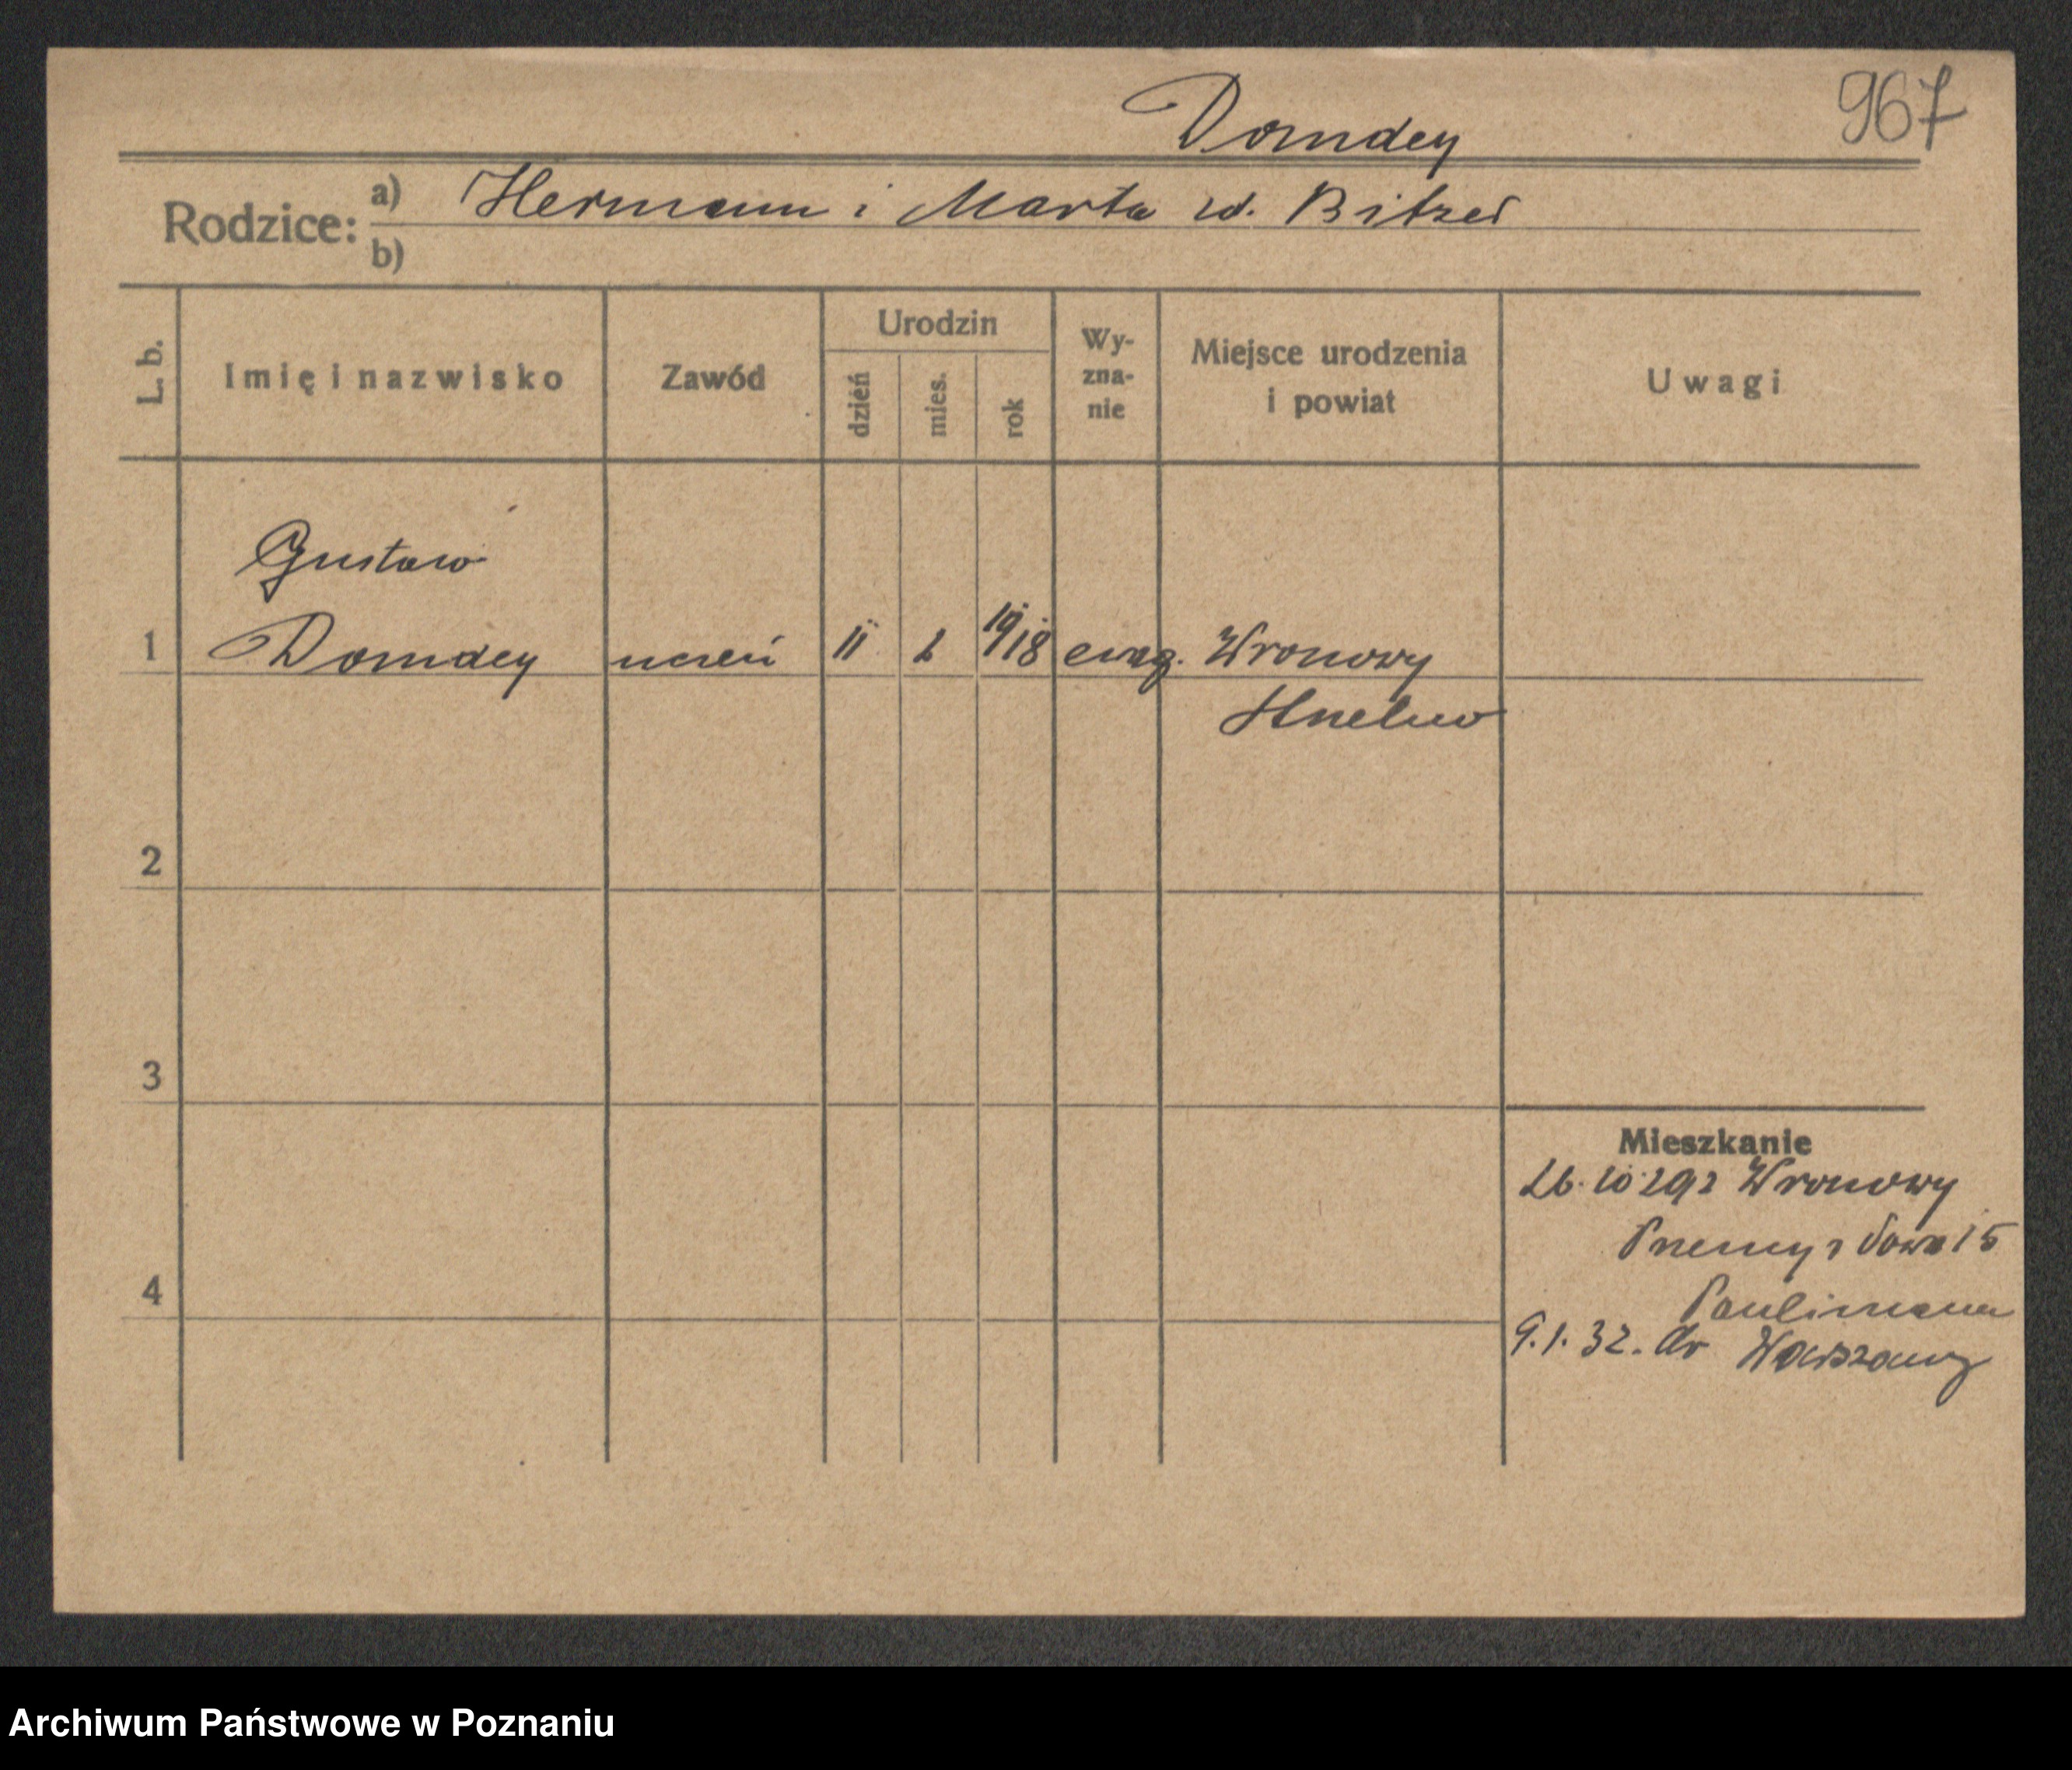 967
Domdey
Rodzice: a) Hermann i Marta ur. Bitzer
b)
L. b. Imię i nazwisko Zawód Urodzin dzień mies. rok Wy-zna-nie Miejsce urodzenia i powiat Uwagi
Gustaw
1 Domdey uczeń 11 2 1918 ewag. Wronowy
Strzelno
2
3
Mieszkanie
26. 10 29 z Wronowy
15
4
9.1.32. do Warszawy
Archiwum Państwowe w Poznaniu